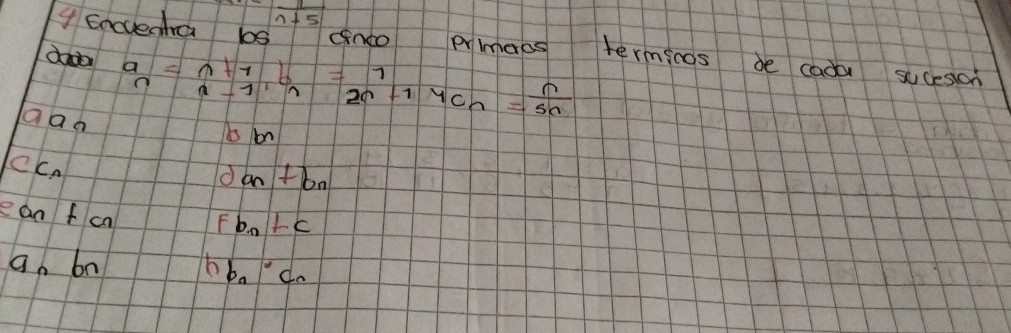 n+5
4 Encuentra los cinco primeros terminos de cada sucesion
a n = n+1 n-1, b n = 1 2n+1 y cn = n 5n
a an b bn
c cn d an + bn
e an + cn F bn + c
an bn h bn · cn